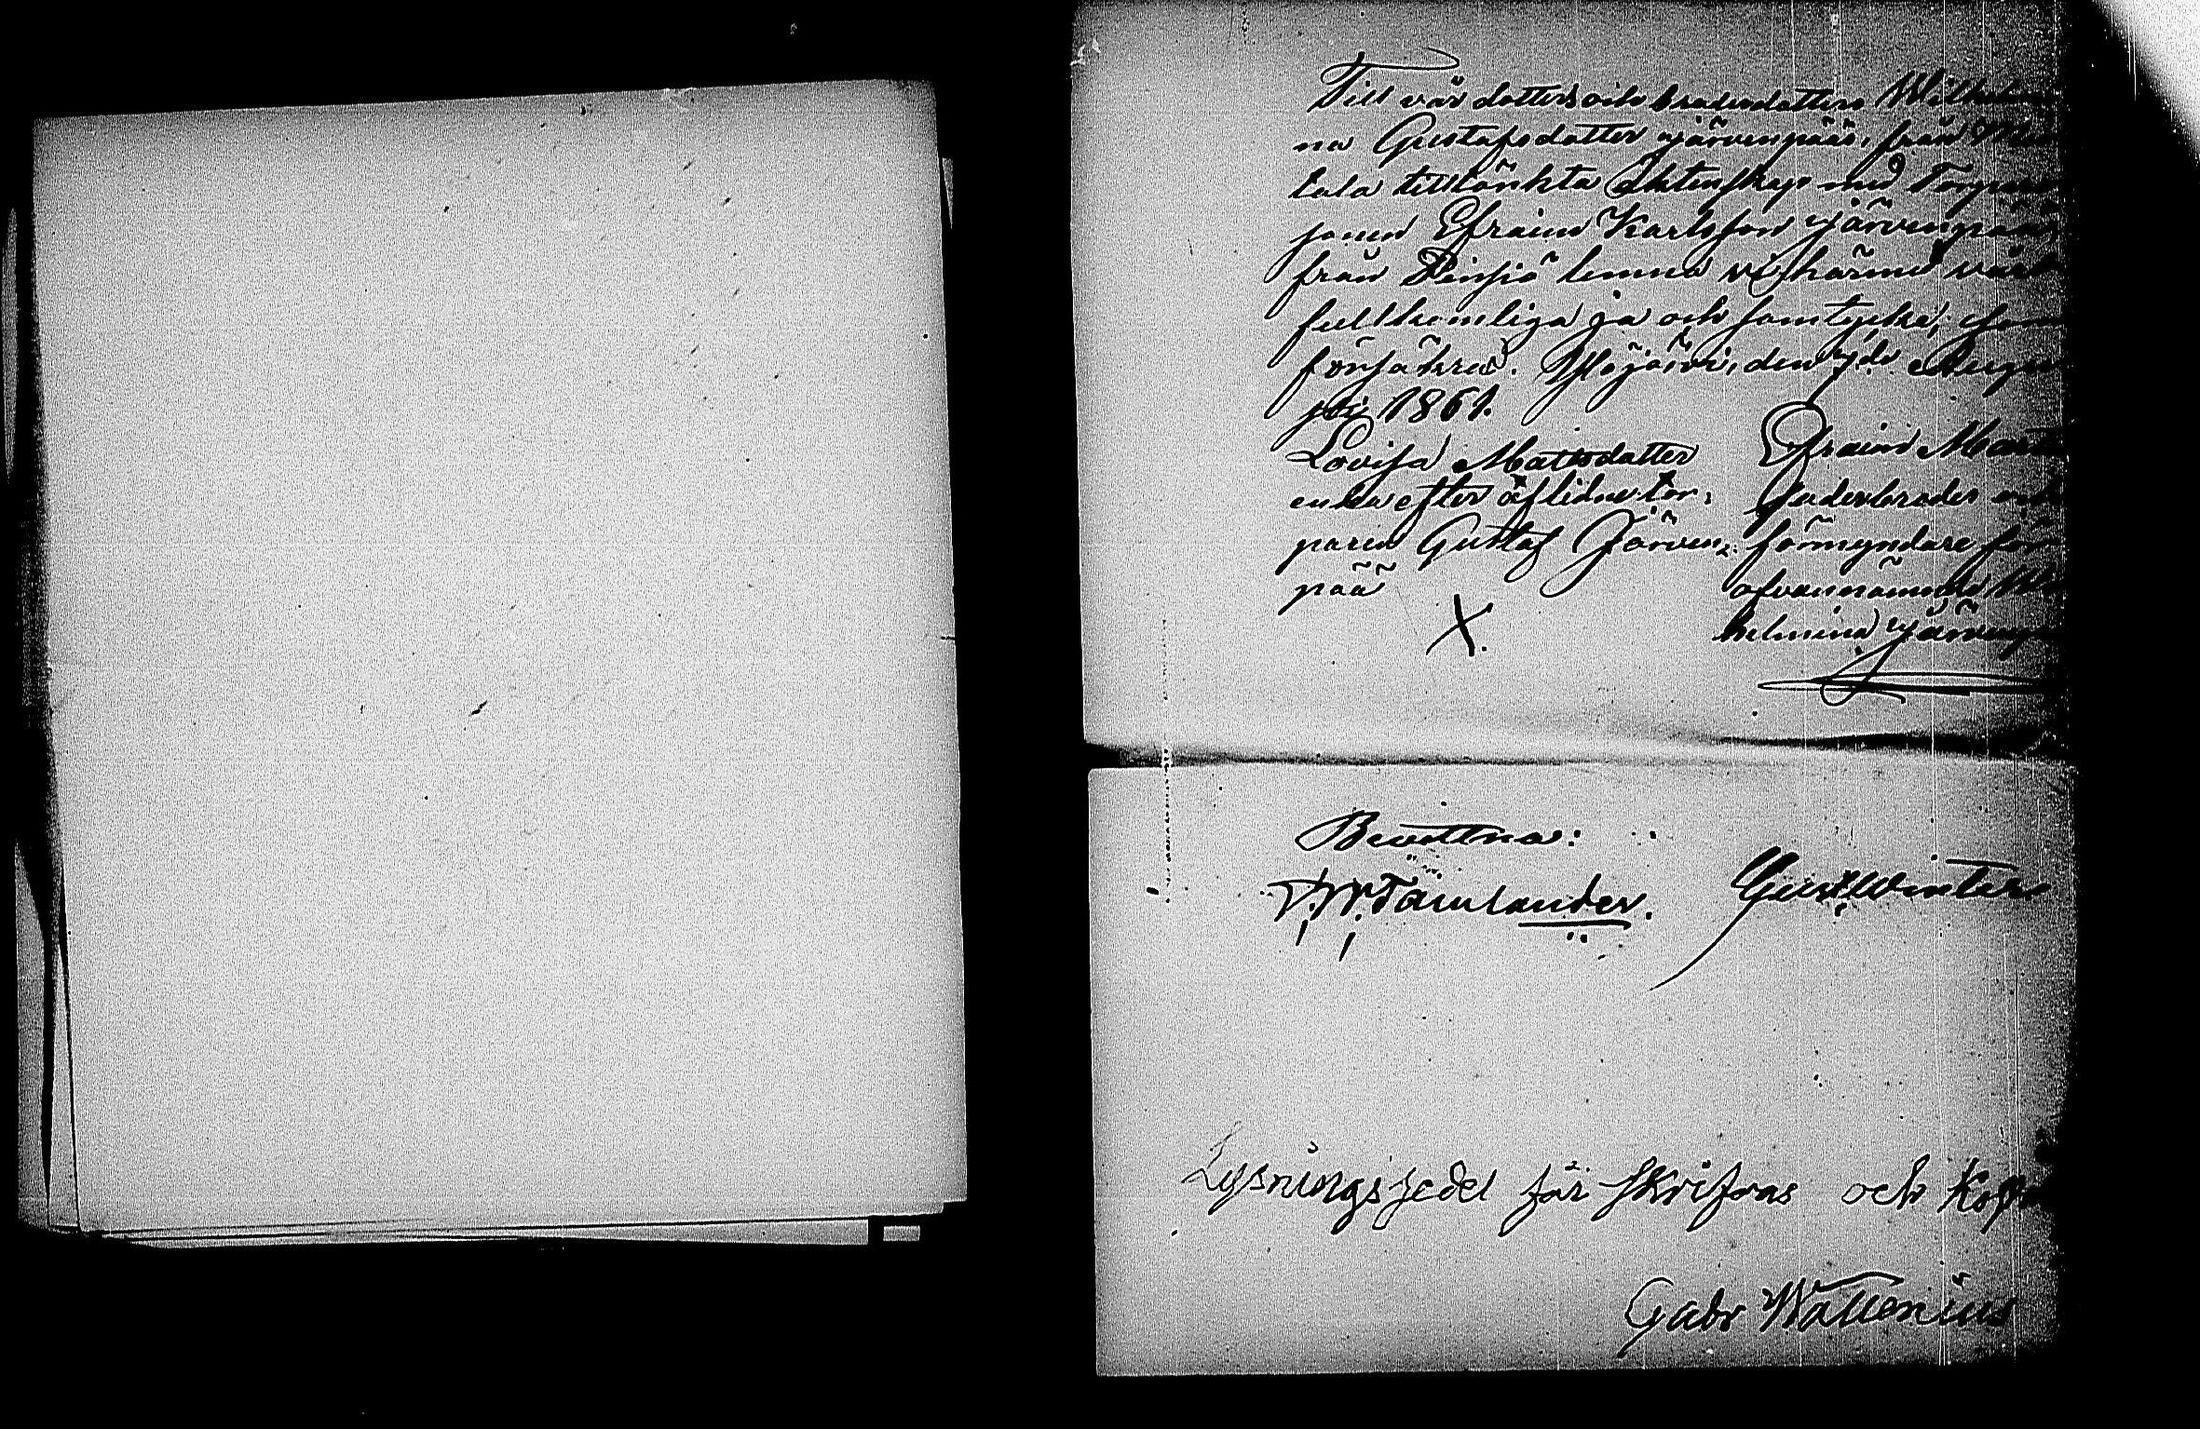 Till vår dotters och brodersdotters Wilhelmi
na Gustafsdotter Järvenpää, från
tala tilltänkta Äktenskap med Torpare
sonen Efraim Karlsson Järvenpää
från Pinsiö lemna vi härmed vårt
fullkomliga ja och samtycke, som
försäkras. Ylöjärvi, den 7de Augu
sti 1861.
Lovisa Matsdotter
enka efter aflidne tor-
paren Gustaf Järven-
pää
X
Efraim
faderbroder och
förmyndare för
ofvannämnde Wil
helmina Järvenpä
Bewittna:
Tamlander.
Gust Winter
Lysningssedel får skrifvas och
Gabr Wallenius